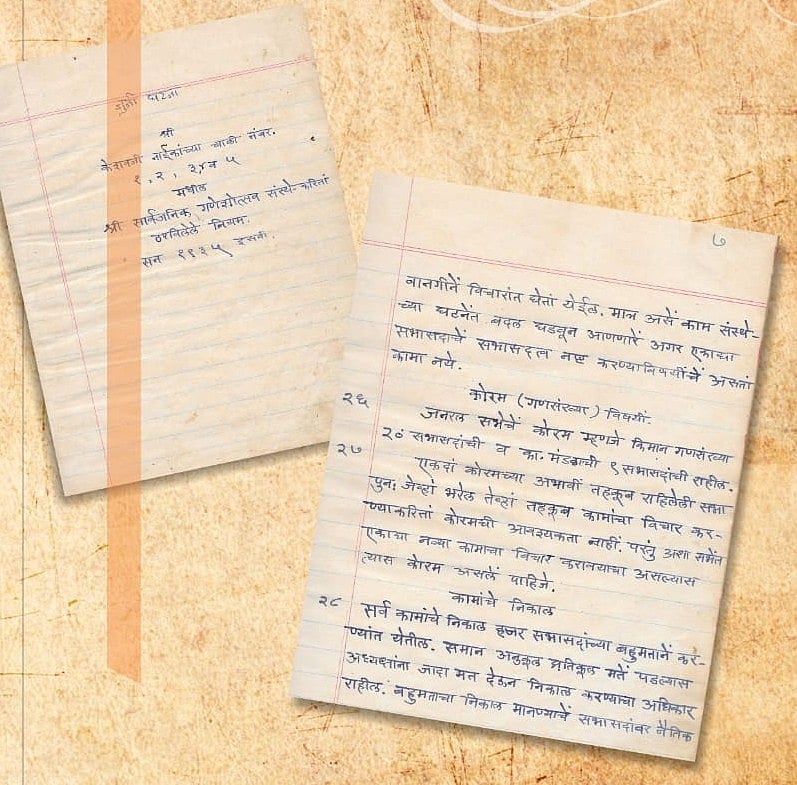 जुनी घटना
श्री
केशवजी नाईकांच्या चाळी नंबर.
१, २, ३, ४ व ५
मधील
श्री सार्वजनिक गणेशोत्सव संस्थे-करितां
ठरविलेले नियम.
सन १९३५ इसवी.
७
वानगीनें विचारांत घेतां येईल. मात्र असें काम संस्थे-
च्या घटनेंत बदल घडवून आणणारें अगर एकाद्या
सभासदाचें सभासदत्व नष्ट करण्याविषयींचें असतां
कामा नये.
कोरम (गणसंख्या) विषयीं.
२६ जनरल सभेचें कोरम म्हणजे किमान गणसंख्या
२० सभासदांची व का. मंडळाची ९ सभासदांची राहील.
२७ एकदां कोरमच्या अभावीं तहकूब राहिलेली सभा
पुन: जेव्हां भरेल तेव्हां तहकूब कामांचा विचार कर-
ण्याकरितां कोरमची आवश्यकता नाहीं. परंतु अशा सभेंत
एकाद्या नव्या कामाचा विचार करावयाचा असल्यास
त्यास कोरम असलें पाहिजे.
कामांचे निकाल
२८ सर्व कामांचे निकाल हजर सभासदांच्या बहुमतानें कर-
ण्यांत येतील. समान अनुकूल प्रतिकूल मतें पडल्यास
अध्यक्षांना जादा मत देऊन निकाल करण्याचा अधिकार
राहील. बहुमताचा निकाल मानण्याचें सभासदांवर नैतिक